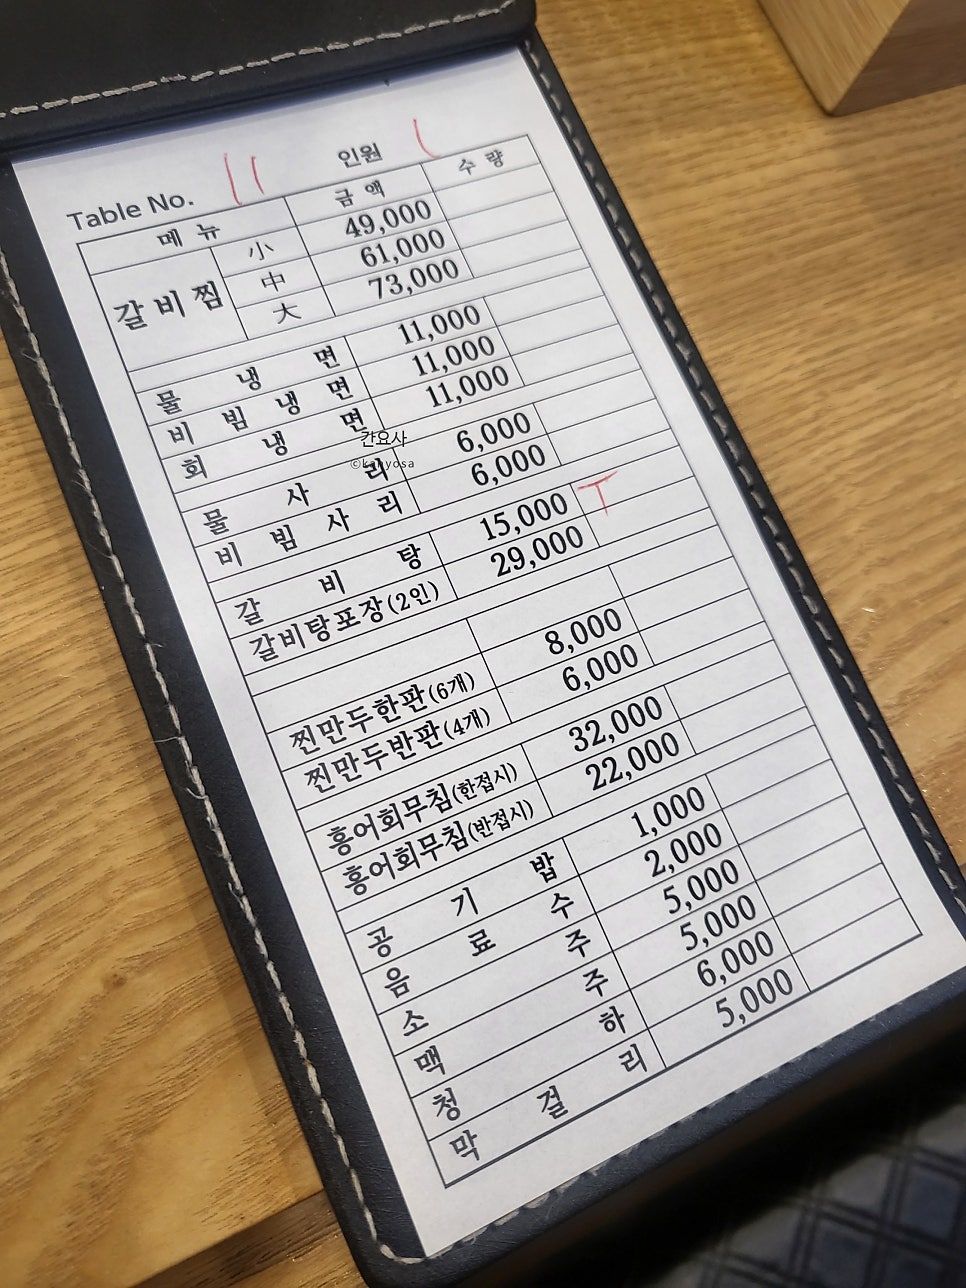 Table No. 11 인원 1
메 뉴 금 액 수 량
갈비찜 小 49,000
中 61,000
大 73,000
물 냉 면 11,000
비 빔 냉 면 11,000
회 냉 면 11,000
물 사 리 6,000
비 빔 사 리 6,000
갈 비 탕 15,000 T
갈비탕포장(2인) 29,000
찐만두한판(6개) 8,000
찐만두반판(4개) 6,000
홍어회무침(한접시) 32,000
홍어회무침(반접시) 22,000
공 기 밥 1,000
음 료 수 2,000
소 주 5,000
맥 주 5,000
청 하 6,000
막 걸 리 5,000
칸요사
©kanyosa